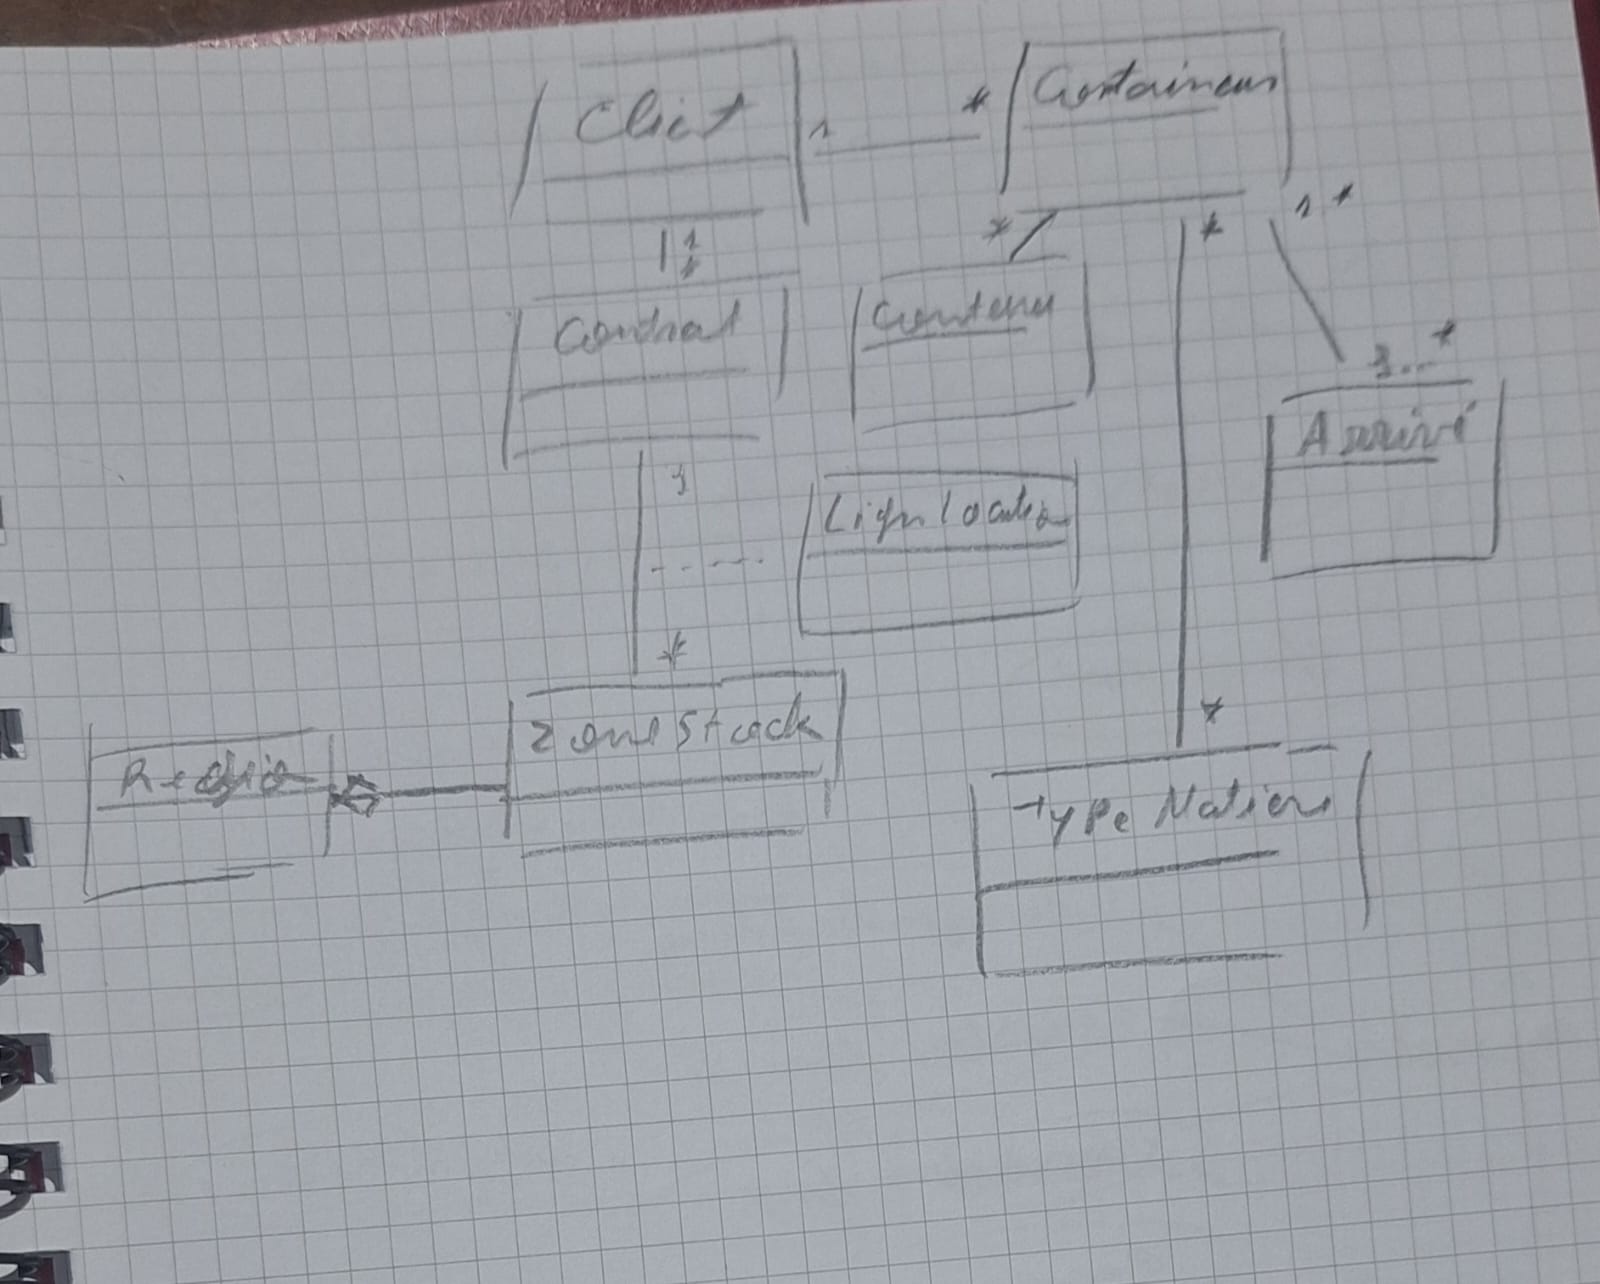 Client 1 * Containeur
1 * * * 1 *
Contrat Contenu
1...*
Arrivé
1
Lign locatio
*
Zone Stock *
Type Matiere